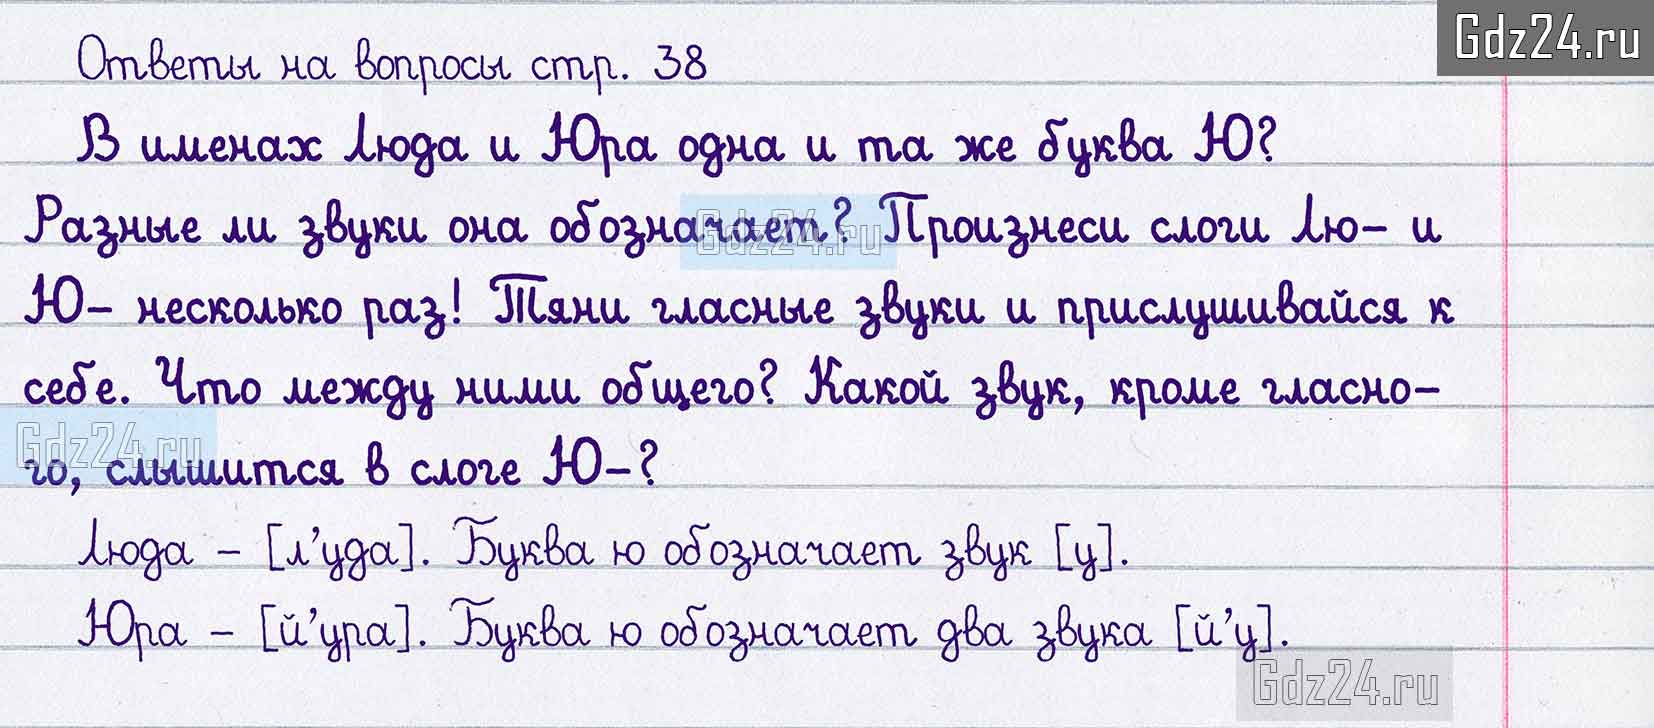 Gdz24.ru
Ответы на вопросы стр. 38
В именах Люда и Юра одна и та же буква Ю?
Разные ли звуки она обозначает? Произнеси слоги Лю- и
Gdz24.ru
Ю- несколько раз! Тяни гласные звуки и прислушивайся к
себе. Что между ними общего? Какой звук, кроме гласно-
Gdz24.ru
го, слышится в слоге Ю-?
Люда - [л’уда]. Буква ю обозначает звук [у].
Юра - [й’ура]. Буква ю обозначает два звука [й’у].
Gdz24.ru